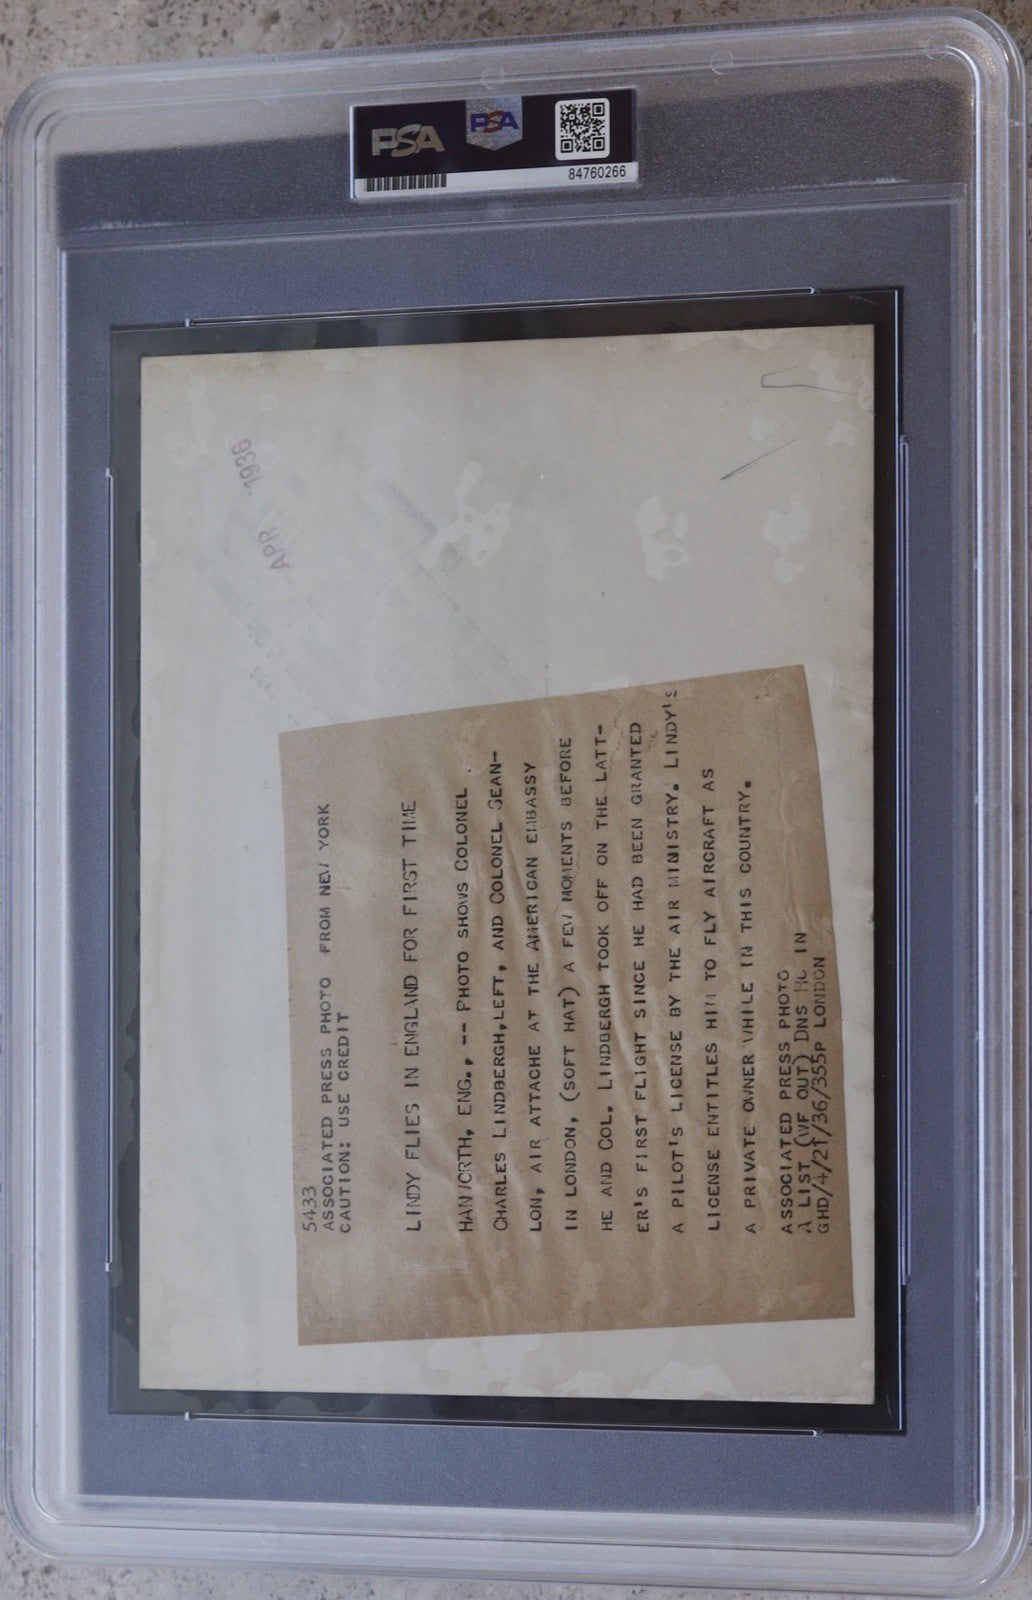 PSA
PSA
84760266
APR 1936
5433
ASSOCIATED PRESS PHOTO FROM NEW YORK
CAUTION: USE CREDIT
LINDY FLIES IN ENGLAND FOR FIRST TIME
HANWORTH, ENG., -- PHOTO SHOWS COLONEL
CHARLES LINDBERGH, LEFT, AND COLONEL SCAN-
LON, AIR ATTACHE AT THE AMERICAN EMBASSY
IN LONDON, (SOFT HAT) A FEW MOMENTS BEFORE
HE AND COL. LINDBERGH TOOK OFF ON THE LATT-
ER'S FIRST FLIGHT SINCE HE HAD BEEN GRANTED
A PILOT'S LICENSE BY THE AIR MINISTRY. LINDY'S
LICENSE ENTITLES HIM TO FLY AIRCRAFT AS
A PRIVATE OWNER WHILE IN THIS COUNTRY.
ASSOCIATED PRESS PHOTO
A LIST (WF OUT) DNS MC IN
GHD/4/21/36/355P LONDON